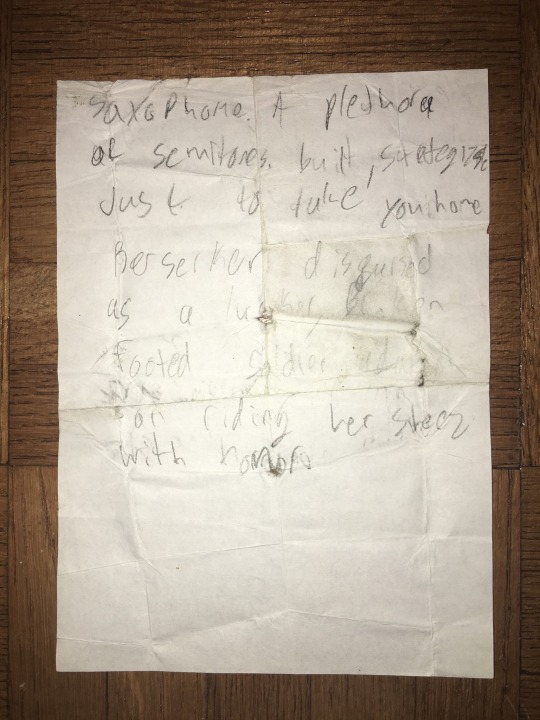 Saxophone. A plethora
of semitones. built, strategize
Just to take you home
Berserker disguised
as a
footed soldier
on riding her steez
with honors